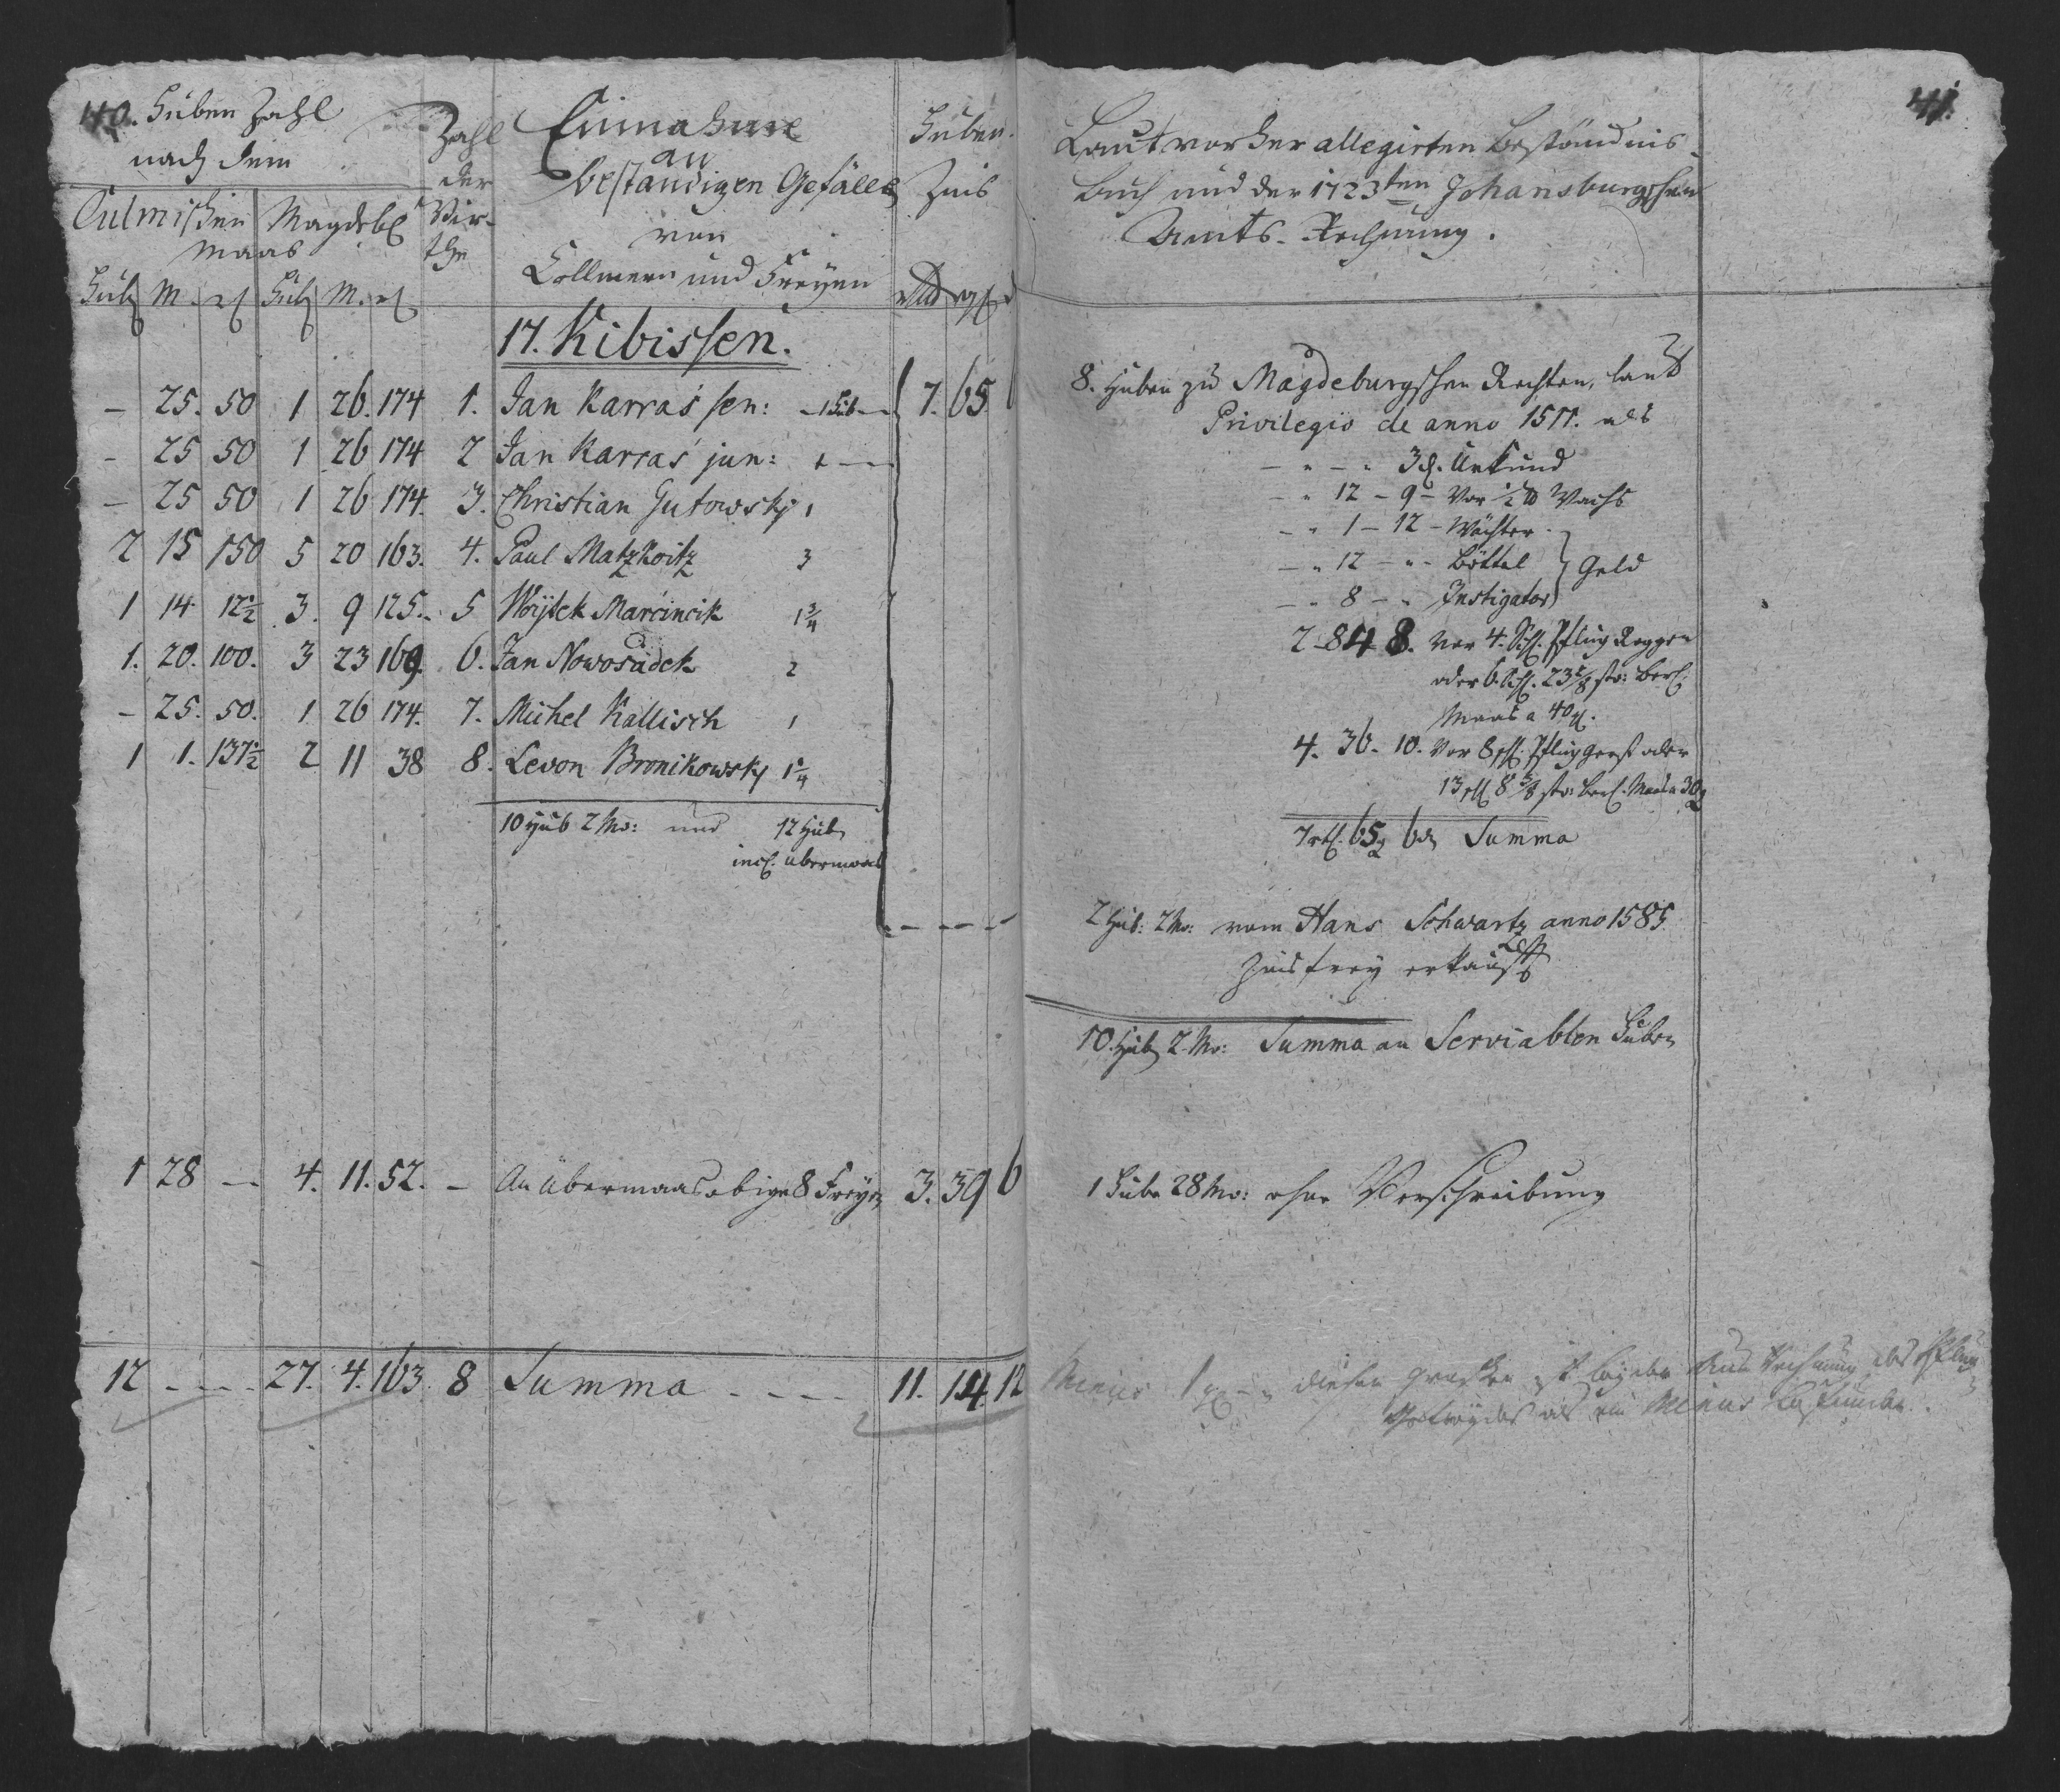 40. Huben Zahl
nach dem
Culmischen Magdeb
Maas
Zahl
der
Wir-
the
Einnahme
an
beständigen Gefälle
von
Cöllmern und Freyen
Huben
Zins
Hub M. r Hub M. r
17. Kibissen.
– 25. 50 1 26. 174 1. Jan Karras sen: – 1 Hub – 7. 65 6
– 25 50 1 26 174 2 Jan Karras jun: 1 –
– 25 50 1 26 174. 3. Christian Gutowsky 1
2 15 150 5 20 163. 4. Paul Matzkoitz 3
1 14 12½ 3. 9 125. 5 Woytek Marcincik 1¾
1. 20. 100. 3 23 169. 6. Jan Nowosadek 2
– 25. 50. 1 26 174. 7. Michel Kallisch 1
1 1. 137½ 2 11 38 8. Levon Bronikowsky 1¼
10 Hub 2 Mo: und 12 Hub
incl. übermaas
1 28 – 4. 11. 52. – An übermaas obige 8 Freyen 3. 39 6
12 – – 27. 4. 163. 8 Summa – – – 11. 14. 12
41.
Laut vorher allegirten Beständnis-
Buch und der 1723ten Johansburgschen
Amts-Rechnung.
8. Huben zu Magdeburgschen Rechten, laut
Privilegio de anno 1577. als
3 d. Urkund
12 – 9 – Vor ½ ℔ Wachs
1 – 12 – Wächter
12 – Büttel } Geld
8 – Instigator
2 – 84 8. vor 4. Schl. Pflug Roggen
oder 6. Schl. 23⅝ str: Berl.
Maas a 40 g.
4. 30. 10. Vor 8 schl. Pflug gerst oder
13 schl 8⅜ str: Berl. Maas a 30 g
7 rtl. 65 g 6 d Summa
2 Hub: 2 Mo: vom Hans Schwartz anno 1585
Zinsfrey erkaufft
10. Hub 2. Mo: Summa an Serviablen Huben
1 Hube 28 Mo: ohne Verschreibung
Minus 1 – dieser groschen ist bey der Aus Rechnung des Pflug
Getreydes als ein Minus befunden.